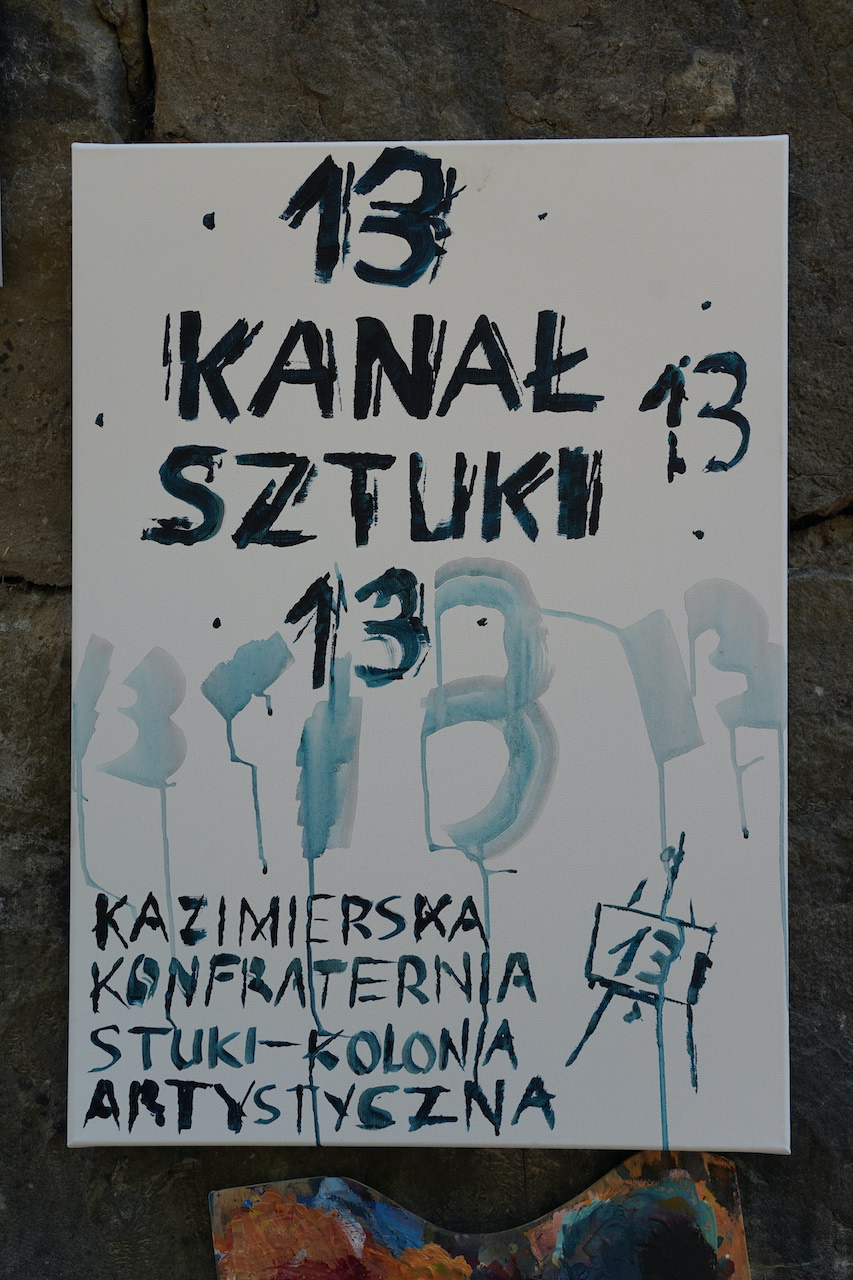 13
KANAŁ
13
SZTUKI
13
13
13
13
KAZIMIERSKA
KONFRATERNIA
STUKI-KOLONIA
ARTYSTYCZNA
13